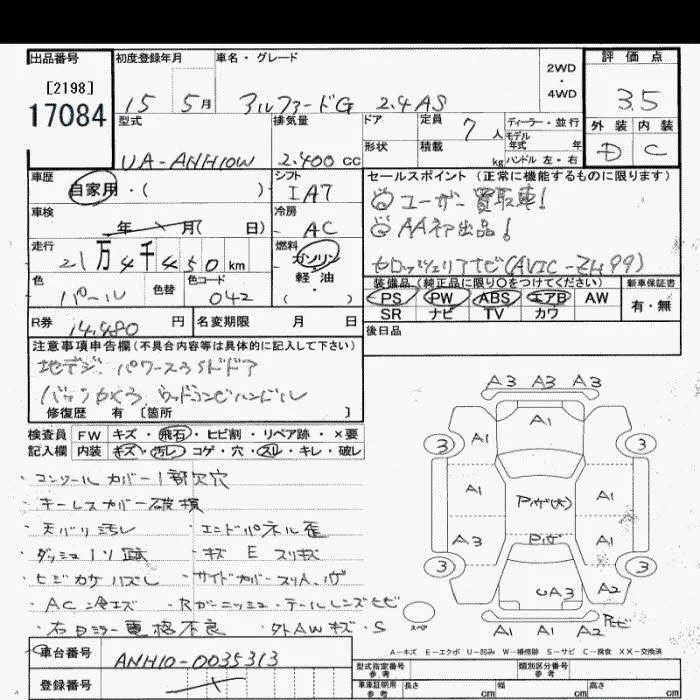 出品番号
[2198]
17084
初度登録年月
15 5月
車名・グレード
アルファードG 2.4AS
2WD
・
4WD
評価点
3.5
外装 内装
D C
型式
UA-ANH10W
排気量
2.400 cc
ドア
形状
定員 7人
積載 kg
ディーラー・並行
モデル年式 年
ハンドル 左・右
車歴
自家用・( )
シフト
IA7
車検
年 月( 日)
冷房
AC
走行
21万4千450km
燃料
ガソリン
軽油
( )
色
パール
色替
色コード
042
R券 14.480円
名変期限 月 日
セールスポイント (正常に機能するものに限ります)
ユーザー買取車!
AA初出品!
カロッツェリアナビ(AVIC-ZH99)
装備品(純正品に限り○をつけてください)
PS PW ABS エアB AW
SR ナビ TV カワ
新車保証書
有・無
後日品
注意事項申告欄(不具合内容等は具体的に記入して下さい)
地デジ. パワースライドドア
バックカメラ. ウッドコンビハンドル
修復歴 有 [箇所 ]
検査員記入欄
FW キズ・飛石・ヒビ割・リペア跡・×要
内装 キズ・汚レ・コゲ・穴・スレ・キレ・破レ
・コンソールカバー1部欠穴
・キーレスカバー破損
・天バリ汚レ ・エンドパネル歪
・ダッシュ1ソ跡 ・キズ E スリキズ
・ヒジカケハズレ ・サイドカバースリA、ハゲ
・AC冷エズ ・Rガーニッシュ・テールレンズヒビ
・右Dミラー電格不良 ・外AWキズ・S
A3 A3 A3
A1
3 A1 A1 3
A1 Pハゲ(大) A1
A3 Pハゲ A1
3 UA3 A2 3
スペア
A1 A1 A2 Pヒビ
A-キズ E-エクボ U-凹み W-補修跡 S-サビ C-腐食 XX-交換済
車台番号
ANH10-0035313
登録番号
型式指定番号 参考
類別区分番号 参考
車庫証明用 参考
長さ cm 幅 cm 高さ cm